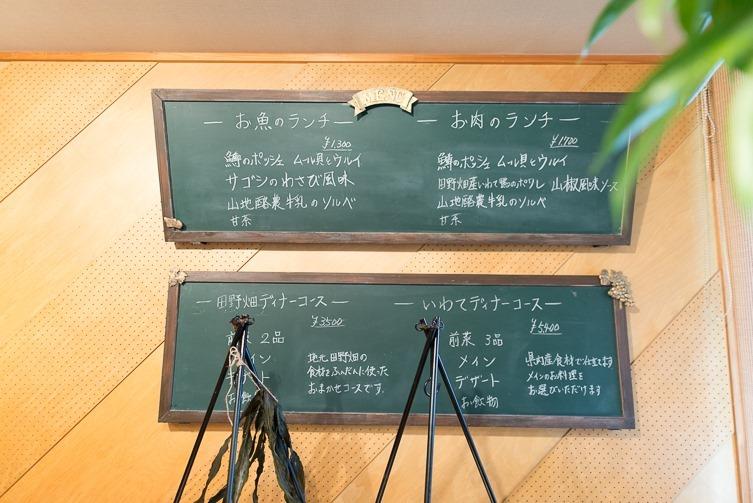 MENU
— お魚のランチ —
¥1,300
鱒のポッシェ ムール貝とウルイ
サゴシのわさび風味
山地酪農牛乳のソルベ
甘茶
— お肉のランチ —
¥1,700
鱒のポッシェ ムール貝とウルイ
田野畑産いわて鴨のポワレ 山椒風味ソース
山地酪農牛乳のソルベ
甘茶
— 田野畑ディナーコース —
¥3,500
前菜 2品
メイン
デザート
お飲
地元田野畑の
食材をふんだんに使った
おまかせコースです。
— いわてディナーコース —
¥5,400
前菜 3品
メイン
デザート
お飲物
県内産食材で仕立てます
メインのお料理を
お選びいただけます